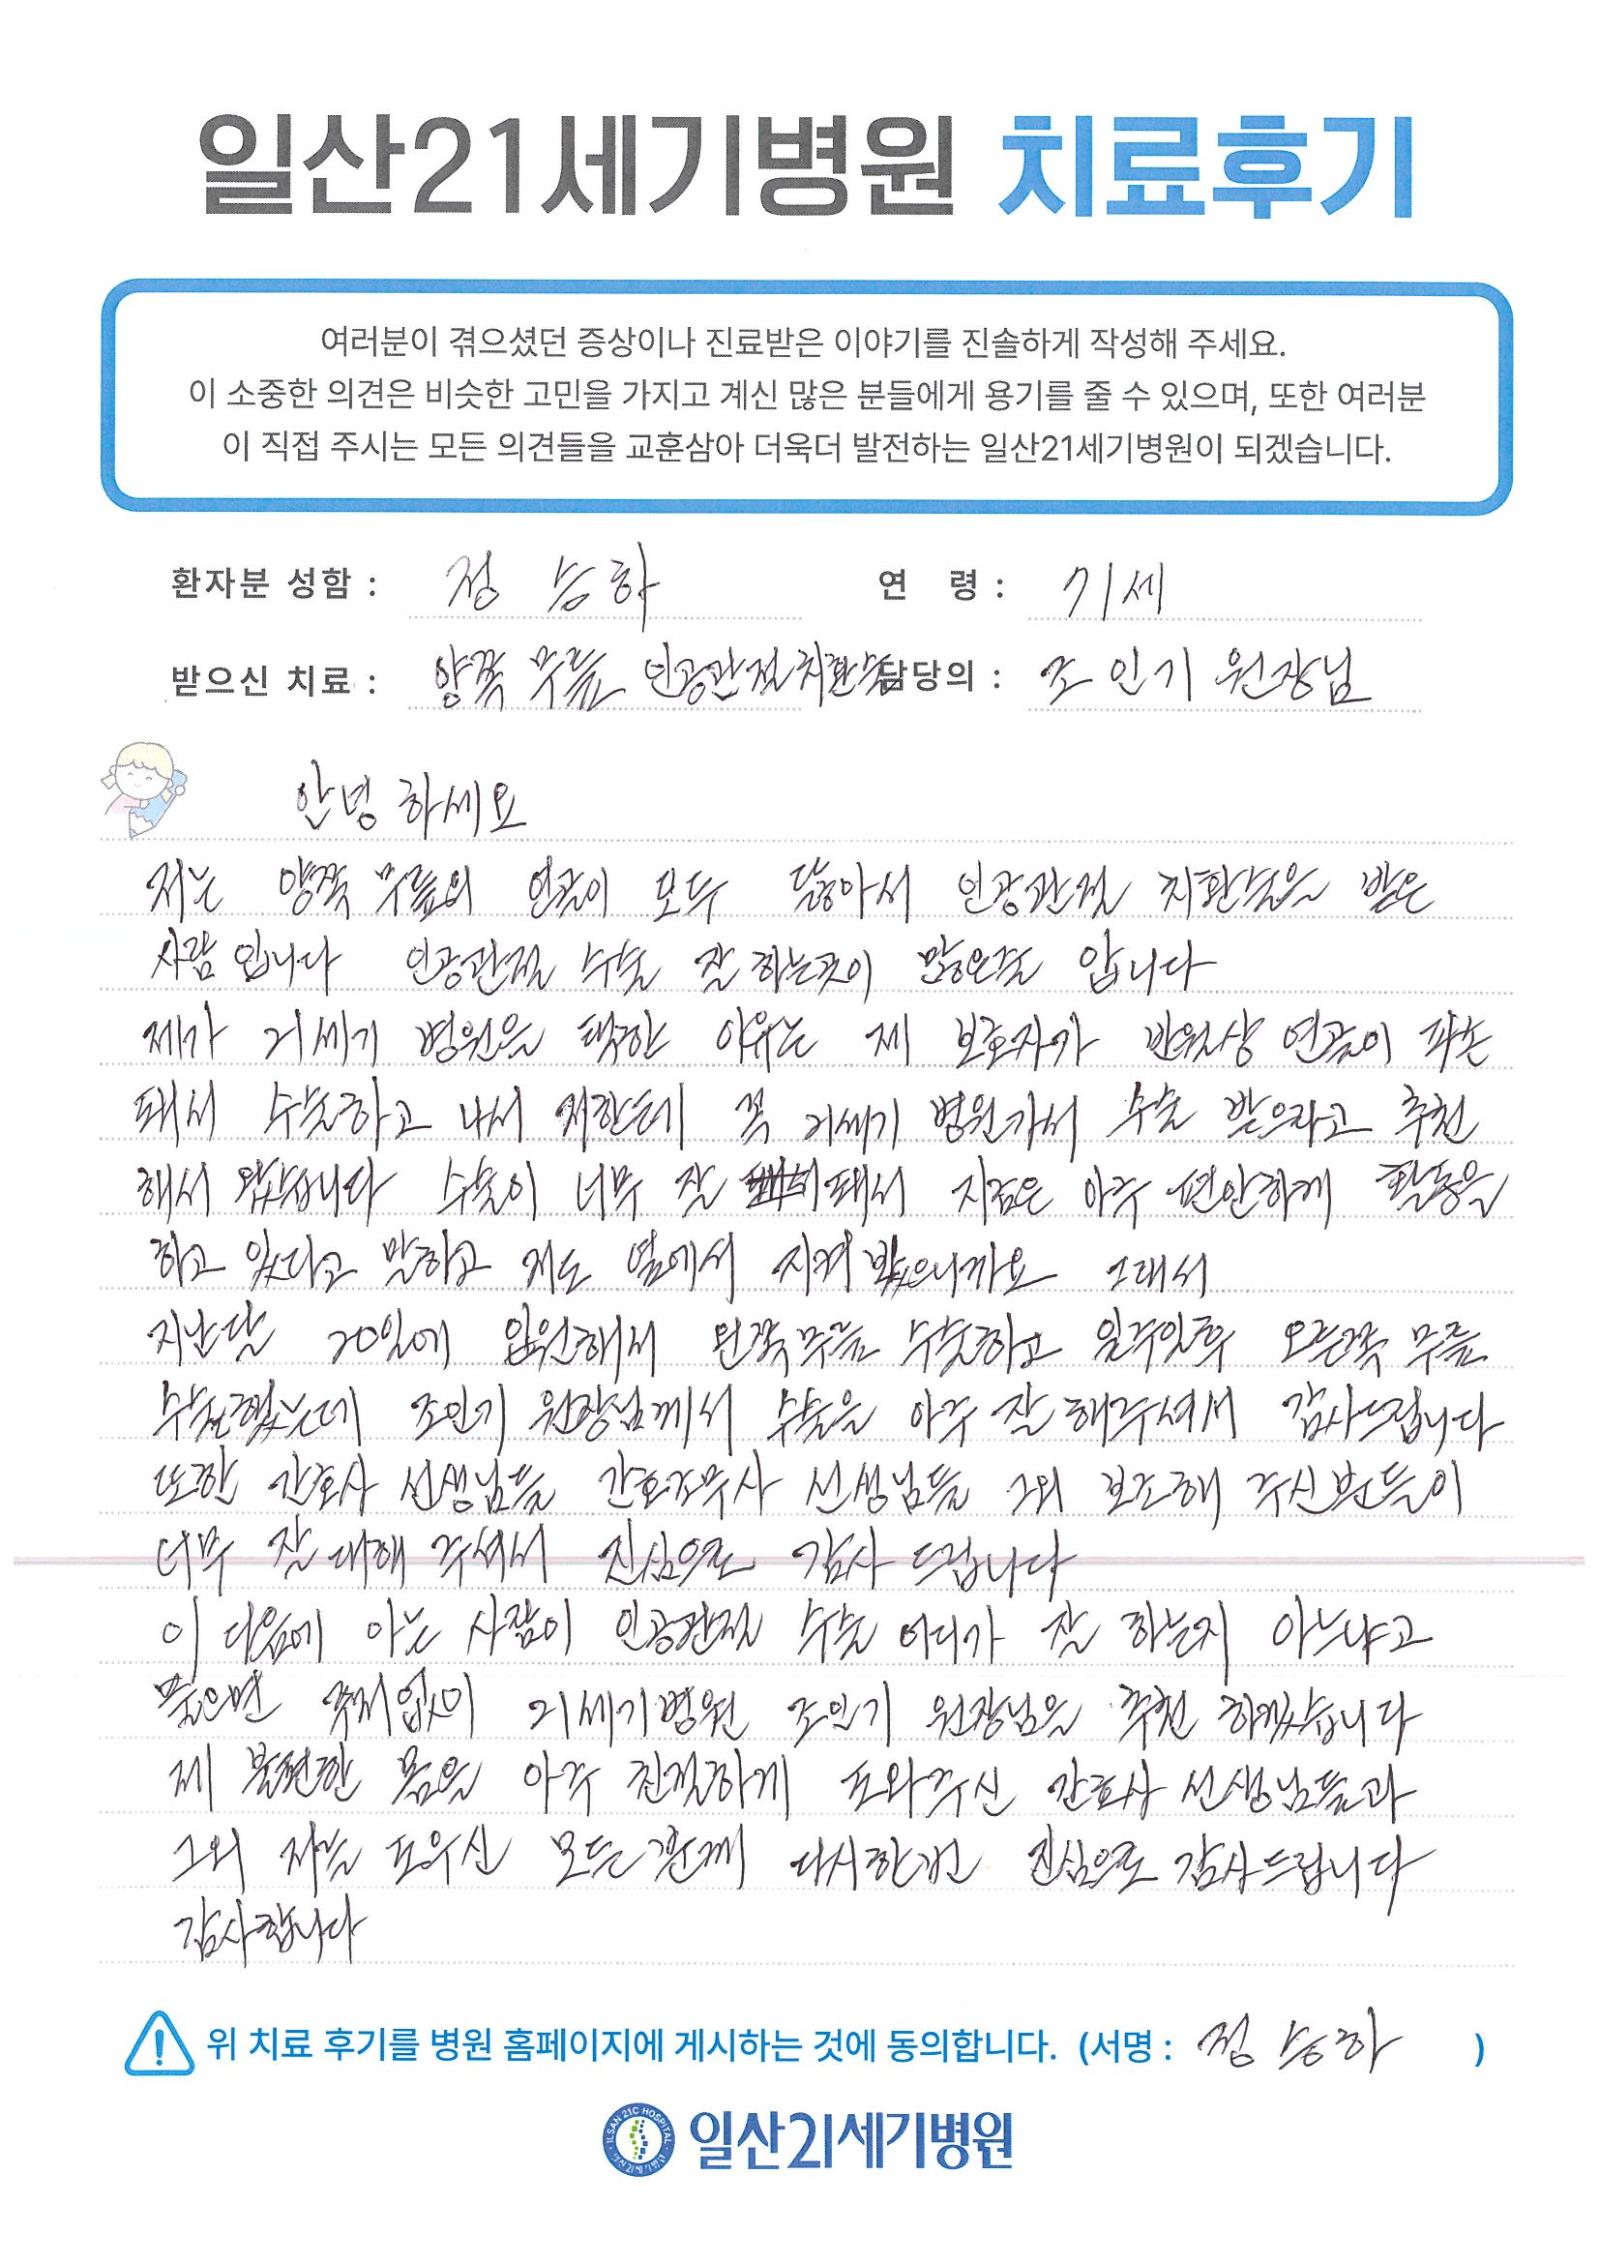 일산21세기병원 치료후기
여러분이 겪으셨던 증상이나 진료받은 이야기를 진솔하게 작성해 주세요.
이 소중한 의견은 비슷한 고민을 가지고 계신 많은 분들에게 용기를 줄 수 있으며, 또한 여러분
이 직접 주시는 모든 의견들을 교훈삼아 더욱더 발전하는 일산21세기병원이 되겠습니다.
환자분 성함 : 정 승하 연 령 : 71세
받으신 치료 : 양쪽 무릎 인공관절치환술 담당의 : 조인기 원장님
안녕 하세요
저는 양쪽 무릎의 연골이 모두 닳아서 인공관절 치환술을 받은
사람 입니다 인공관절 수술 잘 하는곳이 많은줄 압니다
제가 21세기 병원을 택한 이유는 제 보호자가 반월상 연골이 파손
돼서 수술하고 나서 저한테 꼭 21세기 병원가서 수술 받으라고 추천
해서 왔습니다 수술이 너무 잘 돼서 지금은 아주 편안하게 활동을
하고 있다고 말하고 저도 옆에서 지켜 봤으니까요 그래서
지난달 20일에 입원해서 왼쪽무릎 수술하고 일주일후 오른쪽 무릎
수술했는데 조인기 원장님께서 수술을 아주 잘 해주셔서 감사드립니다
또한 간호사 선생님들 간호조무사 선생님들 그외 보조해 주신분들이
너무 잘 대해 주셔서 진심으로 감사 드립니다
이 다음에 아는 사람이 인공관절 수술 어디가 잘 하는지 아느냐고
물으면 주저없이 21세기병원 조인기 원장님을 추천 하겠습니다
제 불편한 몸을 아주 친절하게 도와주신 간호사 선생님들과
그외 저를 도우신 모든분께 다시한번 진심으로 감사드립니다
감사합니다
위 치료 후기를 병원 홈페이지에 게시하는 것에 동의합니다. (서명 : 정 승하 )
ILSAN 21C HOSPITAL
일산21세기병원
일산21세기병원